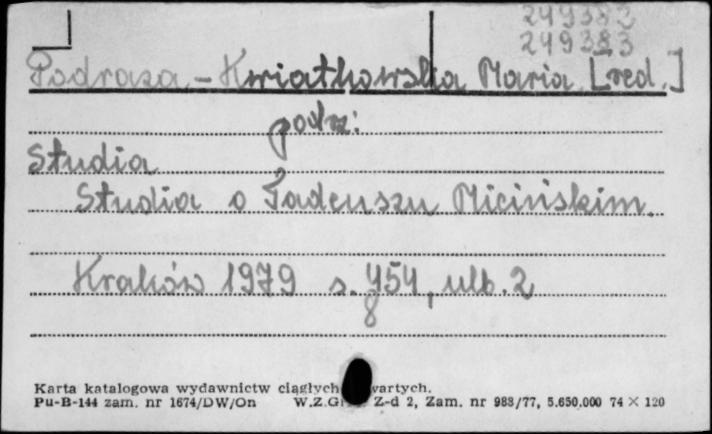 249382
249383
Podraza-Kwiatkowska Maria [red.]
podz:
Studia
Studia o Tadeuszu Micińskim.
Kraków 1979 s. 454, ulb. 2
8
Karta katalogowa wydawnictw ciągłych wartych.
Pu-B-144 zam. nr 1674/DW/On W.Z.G Z-d 2, Zam. nr 988/77, 5.650.000 74 × 120